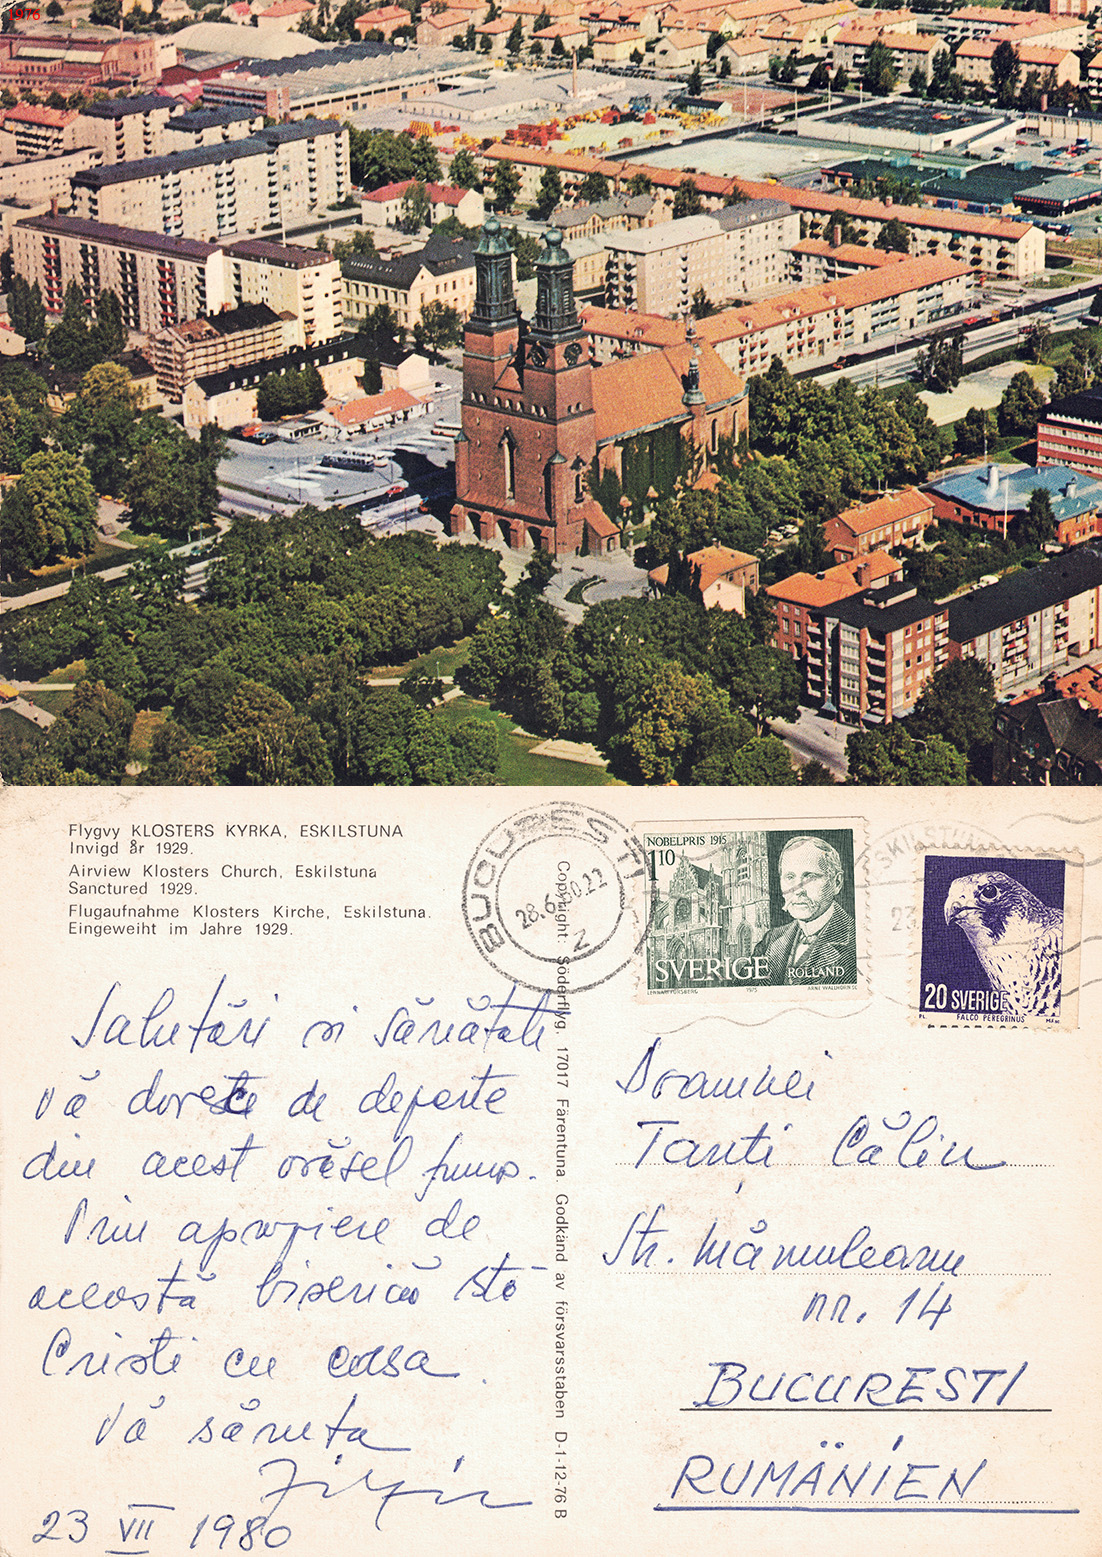 1976
Flygvy KLOSTERS KYRKA, ESKILSTUNA
Invigd år 1929.
Airview Klosters Church, Eskilstuna
Sanctured 1929.
Flugaufnahme Klosters Kirche, Eskilstuna.
Eingeweiht im Jahre 1929.
BUCUREȘTI
28.6
Z
NOBELPRIS 1915
1.10
SVERIGE
ROLLAND
LENNART FORSBERG 1975 ARNE WALLHORN SC
ESKILSTUNA
23
20 SVERIGE
FALCO PEREGRINUS
Copyright: Söderflyg, 17017 Färentuna. Godkänd av försvarsstaben D-1-12-76 B
Salutări și sănătate
vă dorește de departe
din acest orășel frumos.
Prin apropiere de
această biserică stă
Cristi cu casa.
Vă săruta
23 VII 1980
Doamnei
Tanti Călin
Str. Mămuleanu
nr. 14
BUCUREȘTI
RUMÄNIEN